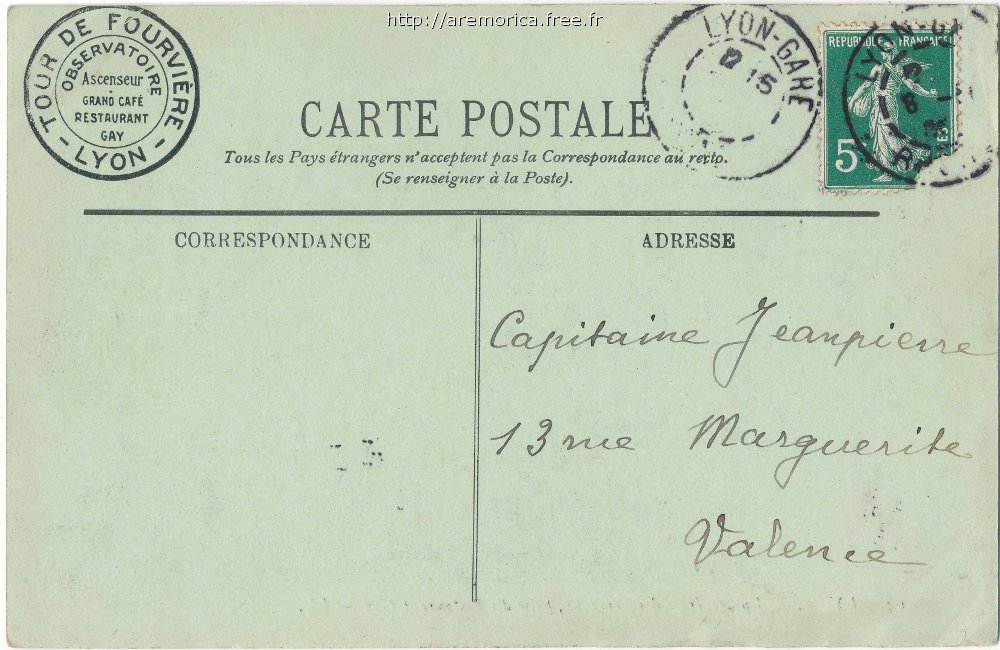 http://aremorica.free.fr
TOUR DE FOURVIÈRE
OBSERVATOIRE
Ascenseur
GRAND CAFÉ
RESTAURANT
GAY
- LYON -
LYON-GARE
12 15
REPUBLIQUE FRANÇAISE
LYON-GARE
5
CARTE POSTALE
Tous les Pays étrangers n'acceptent pas la Correspondance au recto.
(Se renseigner à la Poste).
CORRESPONDANCE
ADRESSE
Capitaine Jeanpierre
13 rue Marguerite
Valence